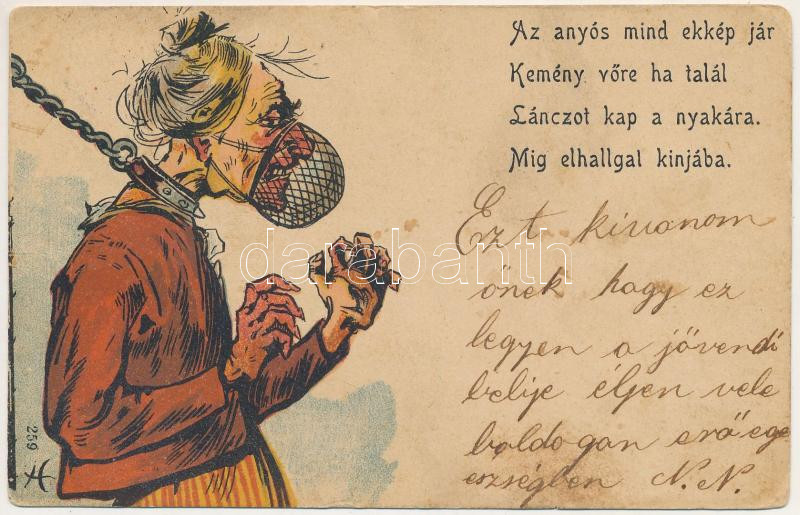 Az anyós mind ekkép jár
Kemény vőre ha talál
Lánczot kap a nyakára.
Mig elhallgal kinjába.
Ezt kivanom
önek hagy ez
legyen a jövendi
belije éljen vele
boldogan erőege
eszségben N.N.
darabanth
259